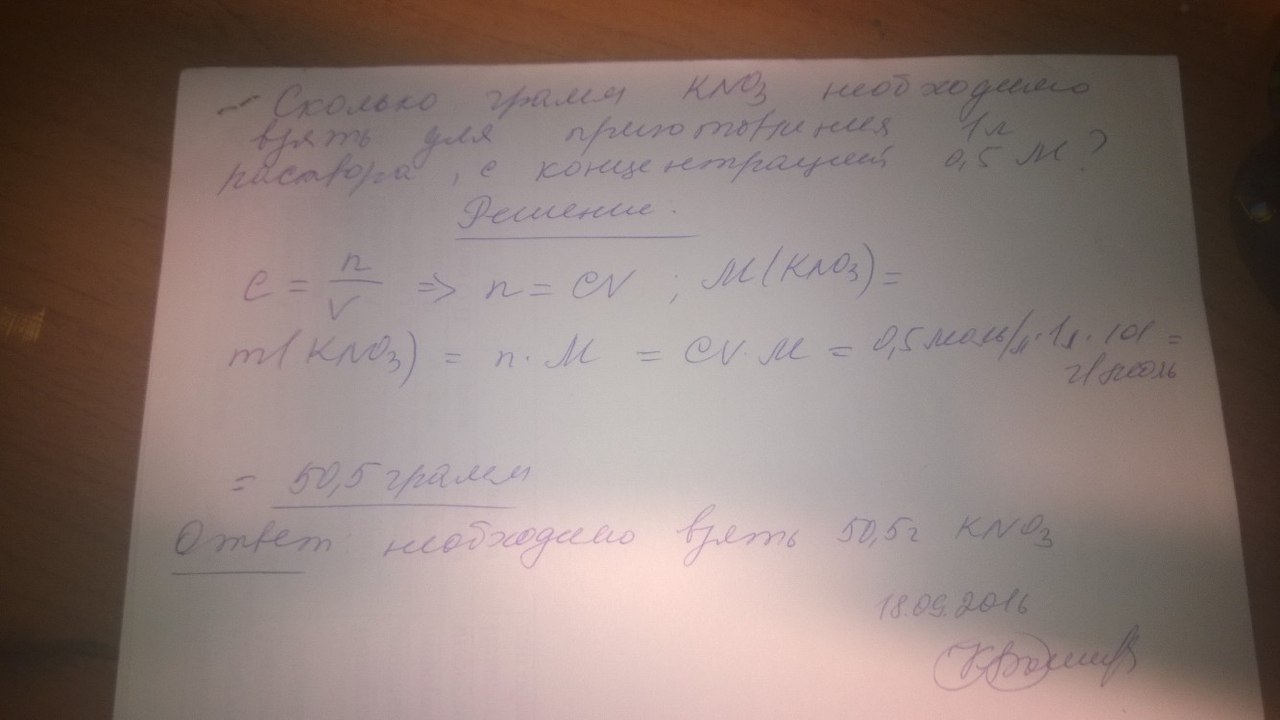 – Сколько грамм KNO3 необходимо
взять для приготовления 1л
раствора, с концентрацией 0,5 М?
Решение.
C = n/V => n = CV ; M(KNO3) =
m(KNO3) = n · M = CV · M = 0,5 моль/л · 1л · 101 =
г/моль
= 50,5 грамм
Ответ: необходимо взять 50,5г KNO3
18.09.2016